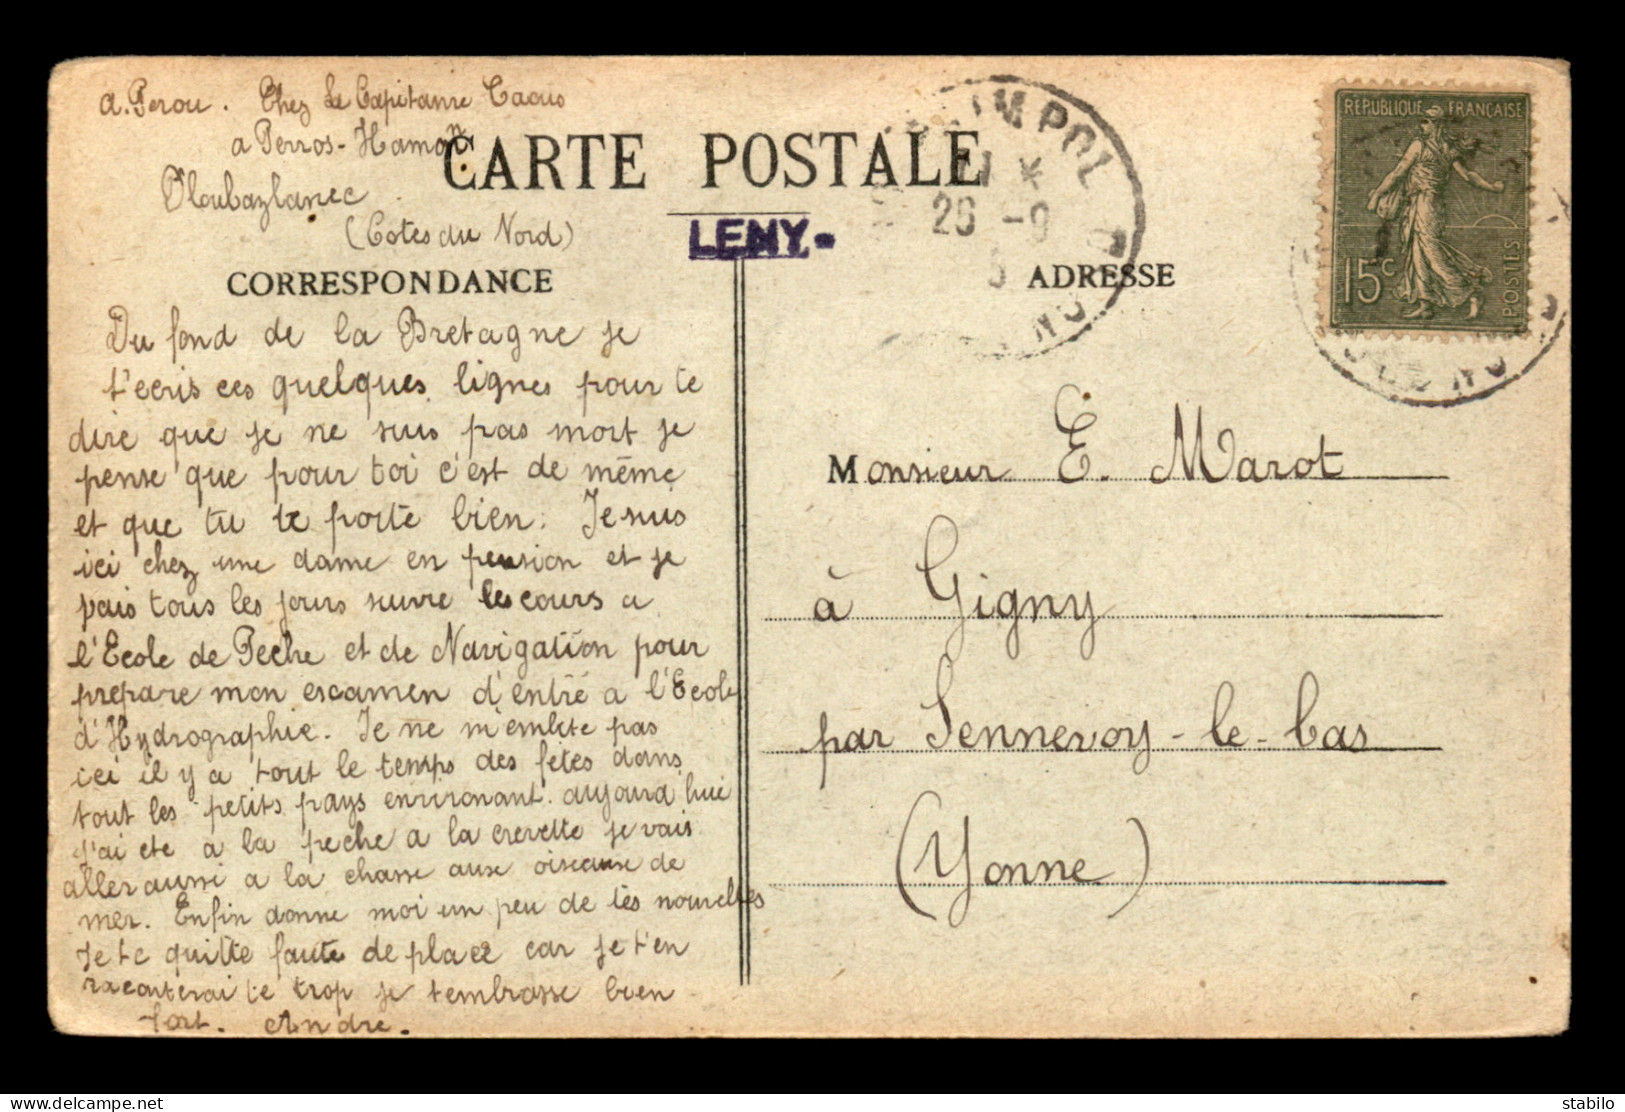 A. Perou. Chez Le Capitaine Caous
a Perros-Hamon
Ploubazlanec
(Cotes du Nord)
CARTE POSTALE
LENY-
PAIMPOL
26 -9
RÉPUBLIQUE FRANÇAISE
15c
POSTES
CORRESPONDANCE
ADRESSE
Du fond de la Bretagne je
t'ecris ces quelques lignes pour te
dire que je ne suis pas mort je
pense que pour toi c'est de même
et que tu te porte bien. Je suis
ici chez une dame en pension et je
vais tous les jours suivre les cours a
l'Ecole de Peche et de Navigation pour
prepare mon escamen d'entré a l'Ecole
d'Hydrographie. Je ne m'embete pas
ici il y a tout le temps des fetes dans
tout les petits pays environant. aujourd'huie
j'ai ete a la peche a la crevette je vais
aller aussi a la chasse aux oiseaux de
mer. Enfin donne moi un peu de tes nouvelles
Je te quitte faute de place car je t'en
raconterai te trop je t'embrasse bien
fort. Andre.
Monsieur E. Marot
à Gigny
par Sennevoy-le-bas
(Yonne)
stabilo